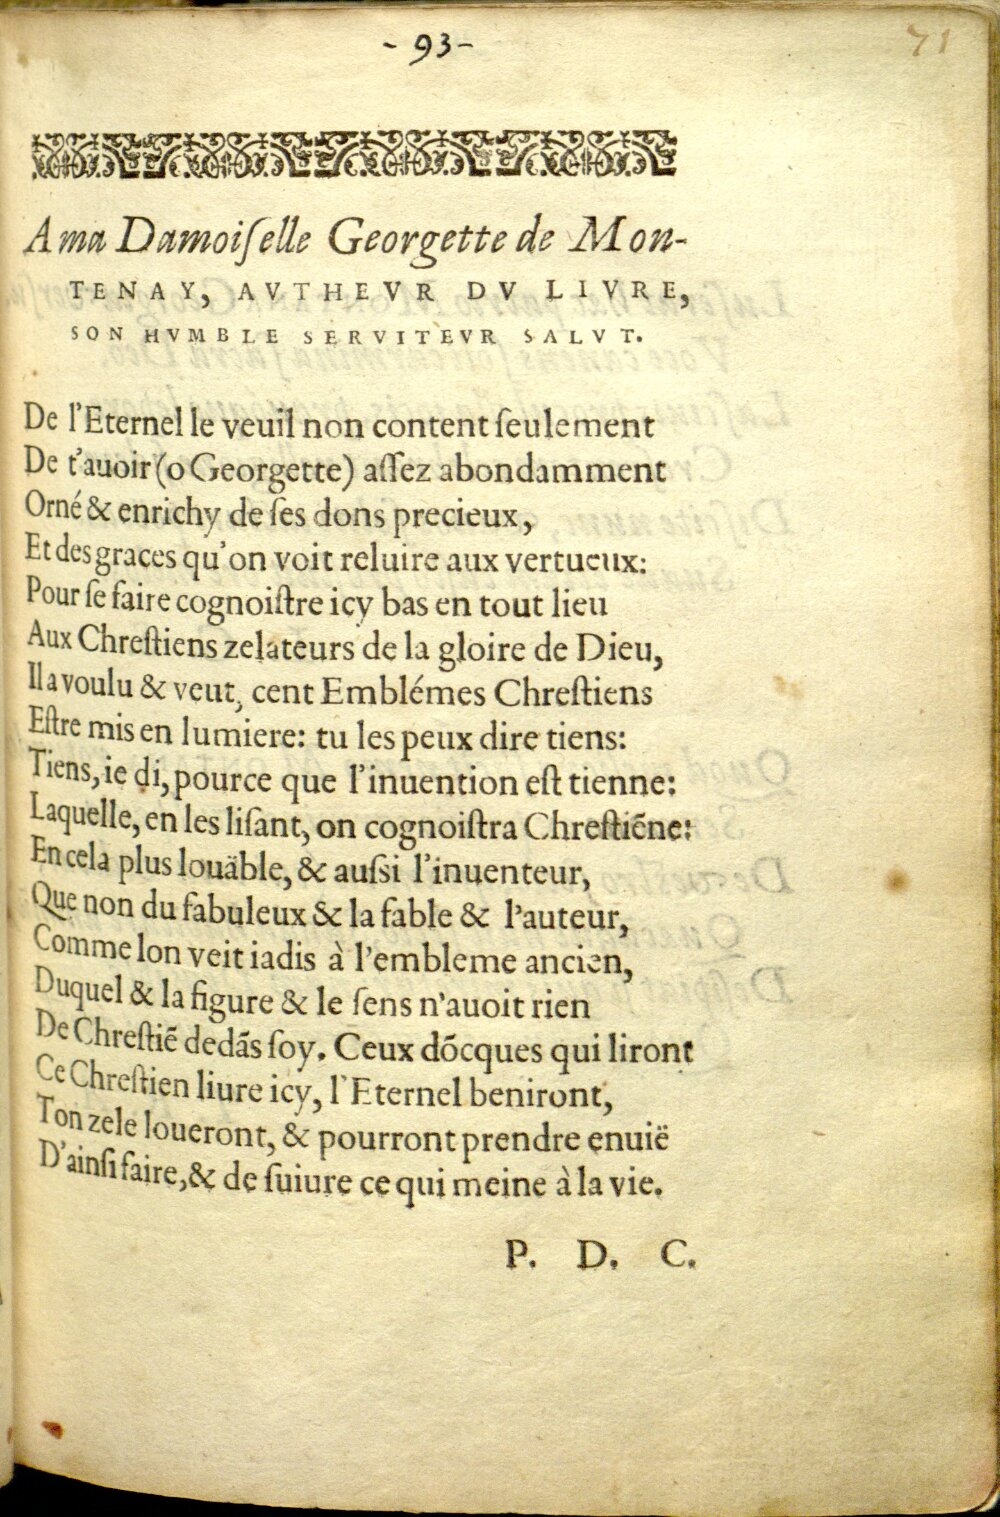 - 93 -
71
A ma Damoiſelle Georgette de Mon-
TENAY, AVTHEVR DV LIVRE,
SON HVMBLE SERVITEVR SALVT.
De l'Eternel le veuil non content ſeulement
De t'auoir (o Georgette) aſſez abondamment
Orné & enrichy de ſes dons precieux,
Et des graces qu'on voit reluire aux vertueux:
Pour ſe faire cognoiſtre icy bas en tout lieu
Aux Chreſtiens zelateurs de la gloire de Dieu,
Il a voulu & veut, cent Emblémes Chreſtiens
Eſtre mis en lumiere: tu les peux dire tiens:
Tiens, ie di, pource que l'inuention eſt tienne:
Laquelle, en les liſant, on cognoiſtra Chreſtiẽne:
En cela plus louäble, & auſsi l'inuenteur,
Que non du fabuleux & la fable & l'auteur,
Comme lon veit iadis à l'embleme ancien,
Duquel & la figure & le ſens n'auoit rien
De Chreſtiẽ dedãs ſoy. Ceux dõcques qui liront
Ce Chreſtien liure icy, l'Eternel beniront,
Ton zele loueront, & pourront prendre enuië
D'ainſi faire, & de ſuiure ce qui meine à la vie.
P. D. C.